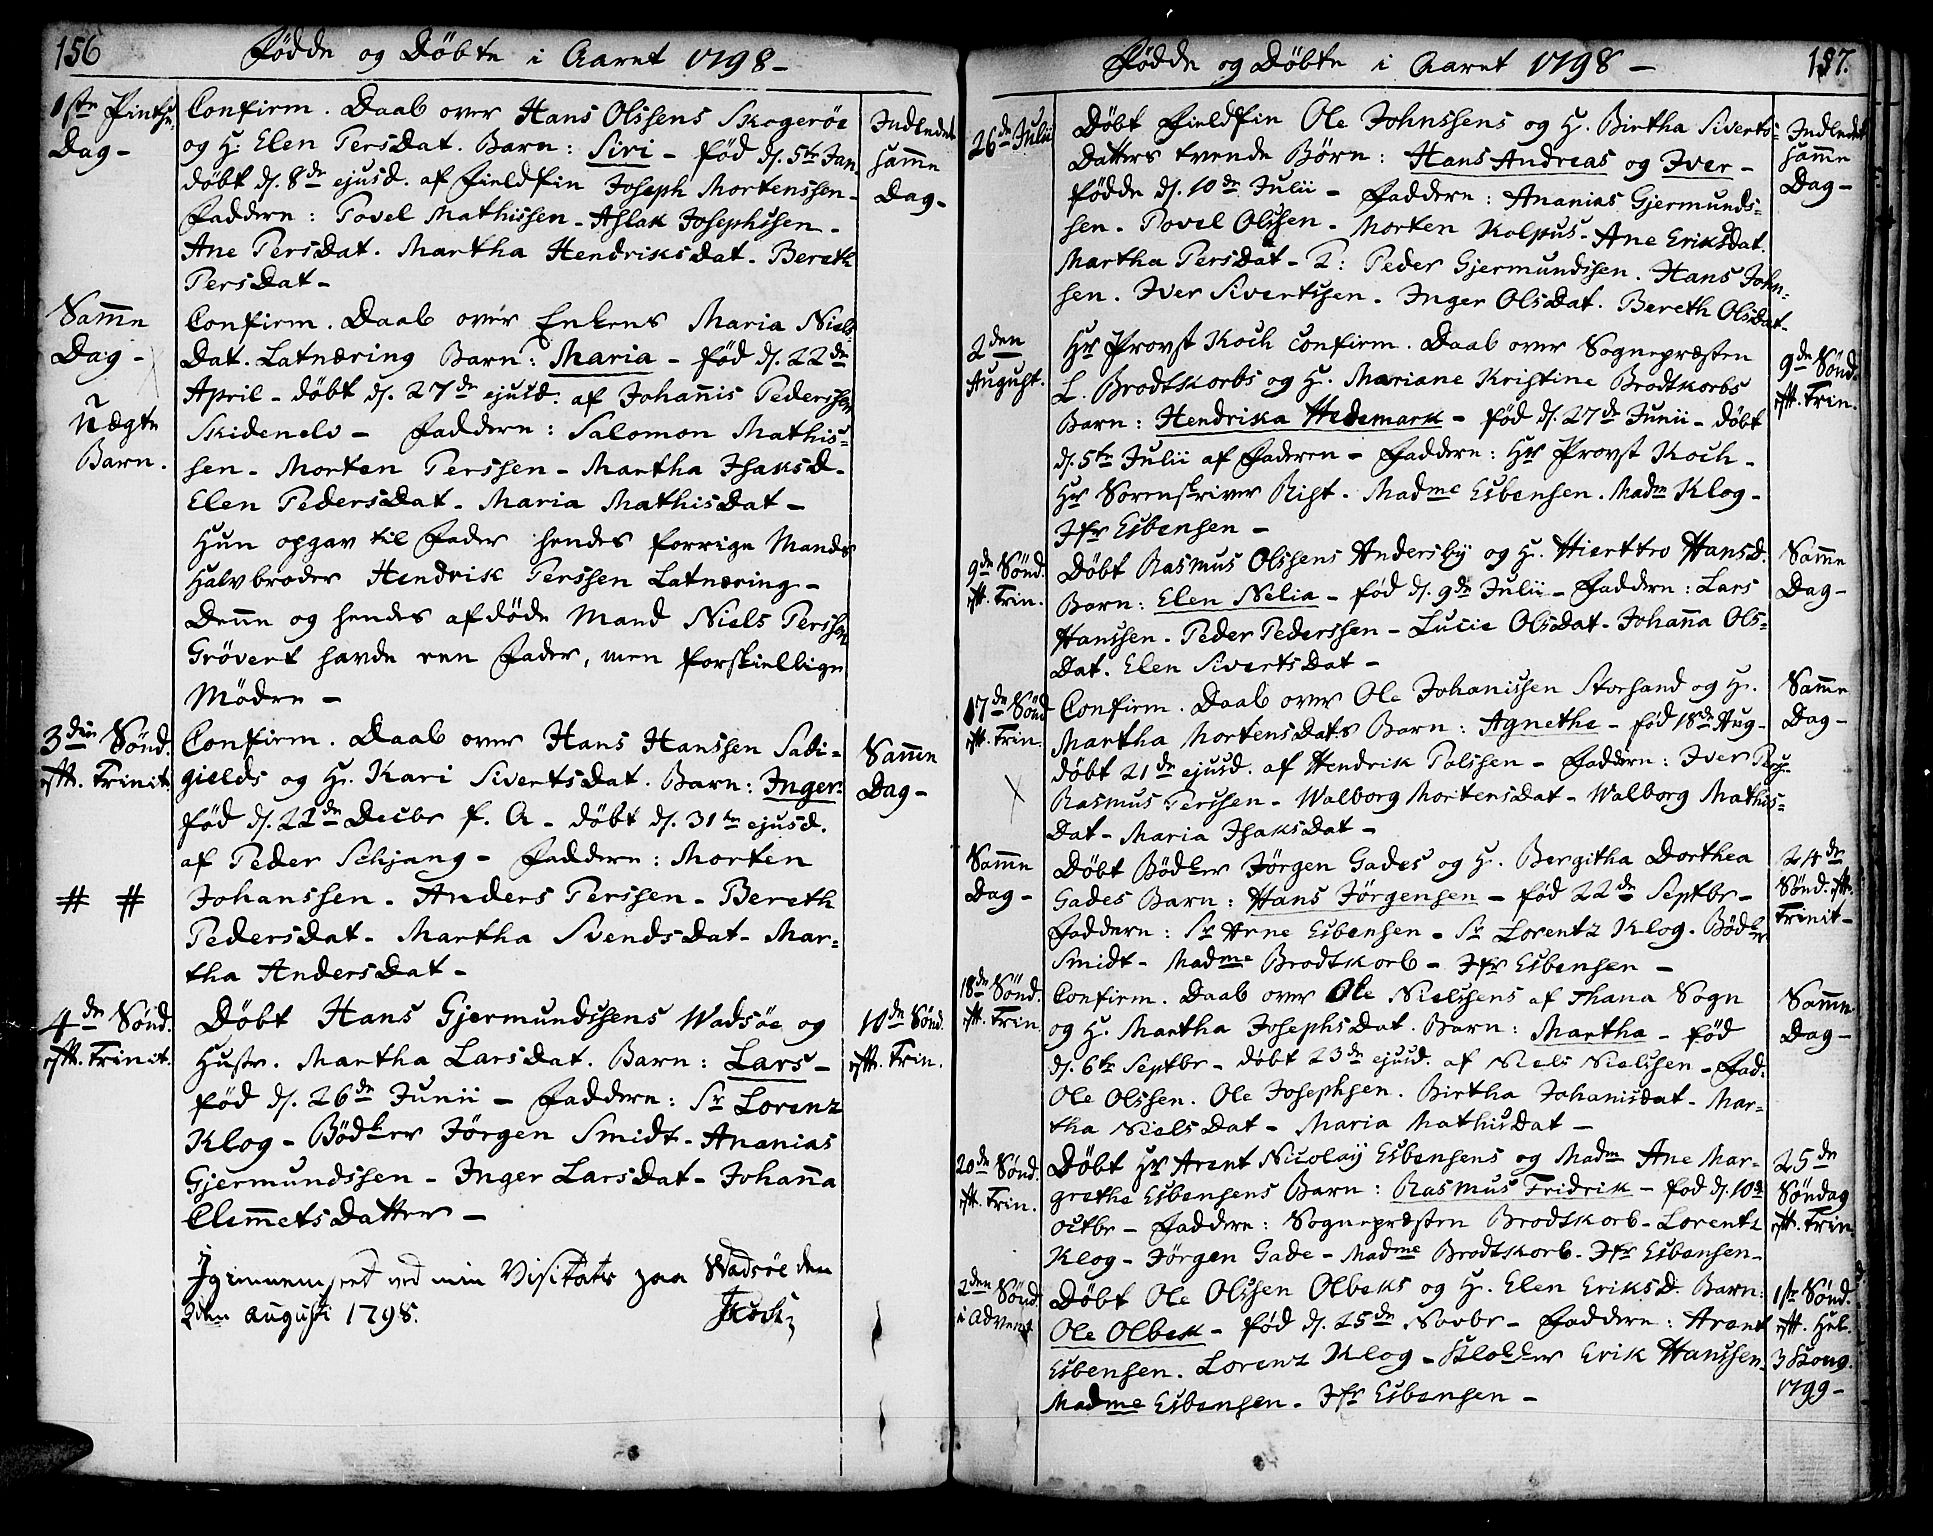 156
Fødde og Døbte i Aaret 1798 -
1ste Pintse-
Dag -
Confirm. Daab over Hans Olssens Skogerøe
og H: Elen PersDat. Barn: Siri - fød d. 5te Jan.
døbt d. 8de ejusd. af Fieldfin Joseph Mortenssen -
Faddern: Povel Mathissen - Aslak Josephssen -
Ane PersDat. Martha HendriksDat - Bereth
PersDat -
Indledet
samme
Dag -
Samme
Dag -
Uægte
Barn.
Confirm. Daab over Enkens Maria Niels
Dat. Latnæring Barn: Maria - fød d. 22de
April - døbt d. 27de ejusd. af Johannis Pederssen
Skidenelv - Faddern: Salomon Mathis-
sen - Morten Perssen - Martha IsaksD -
Elen PedersDat - Maria MathisDat -
Hun opgav til Fader hendes forrige Mands
Halvbroder Hendrik Perssen Latnæring -
Denne og hendes afdøde Mand Niels Perssen
Grövert havde een Fader, men forskiellige
Mødre -
3die Sønd.
eft. Trinit.
# #
Confirm. Daab over Hans Hanssen Sadi-
gields og H. Kari SivertsDat. Barn: Inger
fød d. 22de Decbr f. A - døbt d. 31te ejusd.
af Peder Schjang - Faddern: Morten
Johanssen - Anders Perssen - Bereth
PedersDat - Martha SvendsDat - Mar-
tha AndersDat -
Samme
Dag -
4de Sønd.
eft. Trinit.
Døbt Hans Gjermundssens Wadsøe og
Hustr. Martha LarsDat. Barn: Lars -
fød d. 26de Junii - Faddern: Sr Lorenz
Klog - Bødker Jörgen Smidt - Ananias
Gjermundssen - Inger LarsDat - Johanna
ClemmetsDatter -
10de Sønd.
eft. Trin.
Igiennemseet ved min Visitats paa Wadsöe den
2den August 1798. Koch
Fødde og Døbte i Aaret 1798 -
157.
26de Julii
Døbt Fieldfin Ole Johnssens og H. Birtha Siverts-
Datters tvende Børn: Hans Andreas og Iver -
fødde d. 10de Julii - Faddern: Ananias Gjermunds-
sen - Povel Olssen - Morten Kolpus - Ane EriksDat
Martha PersDat - 2: Peder Gjermundssen. Hans John-
sen. Iver Sivertssen - Inger OlsDat. Bereth OlsDat -
Indledet
samme
Dag -
2den
August.
Hr Provst Koch confirm. Daab over Sognepræsten
L. Brodtskorbs og H. Mariane Kristine Brodtkorbs
Barn: Hendrika Hedemark - fød d. 27de Junii - døbt
d. 5te Julii af Faderen - Faddern: Hr Provst Koch -
Hr Sorenskriver Rist. Madme Esbensen. Madm Klog -
Jfr Esbensen -
9de Sønd.
eft. Trin.
9de Sønd.
eft. Trin.
Døbt Rasmus Olssens Andersby og H. Hierttro HansD.
Barn: Elen Nelia - fød d. 9de Julii - Faddern: Lars
Hanssen. Peder Pederssen - Lucie OlsDat - Johanna Ols-
Dat. Elen SivertsDat -
Samme
Dag -
17de Sønd.
eft. Trin.
Confirm. Daab over Ole Johanissen Storsand og H.
Martha MortensDats Barn: Agnethe - fød 18de Aug -
døbt 21de ejusd. af Hendrik Palssen - Faddern: Iver
Rasmus Perssen - Walborg MortensDat - Walborg Mathis-
Dat - Maria IsaksDat -
Samme
Dag -
Samme
Dag -
Døbt Bødker Jörgen Gades og H. Bergitha Dorthea
Gades Barn: Hans Jörgensen - fød 22de Septbr -
Faddern: Sr Arne Esbensen - Sr Lorentz Klog - Bødker
Smidt - Madme Brodtkorb - Jfr Esbensen -
24de
Sønd. eft.
Trinit -
18de Sønd.
eft. Trin.
Confirm. Daab over Ole Nielssens af Thana Sogn
og H. Martha JosephsDat. Barn: Martha - fød
d. 6te Septbr - døbt 23de ejusd. af Niels Nielssen - Fad:
Ole Olssen. Ole Josephsen. Birtha Johanisdat - Mar-
tha NielsDat - Maria MathisDat -
Samme
Dag -
20de Sønd.
eft. Trin.
Døbt Hr Arent Nicolaÿ Esbensens og Madm Ane Mar-
grethe Esbensens Barn: Rasmus Fridrik - fød d. 10de
Octbr - Faddern: Sognepræsten Brodtkorb - Lorentz
Klog - Jörgen Gade - Madme Brodtkorb - Jfr Esbensen -
25de
Søndag
eft. Trin.
2den Sønd.
i Advent
Døbt Ole Olssen Olbeks og H. Elen EriksD. Barn:
Ole Olbek - fød d. 25de Novbr - Faddern: Arent
Esbensen. Lorenz Klog - Klokker Erik Hanssen.
Madme Esbensen - Jfr Esbensen -
1ste Sønd.
eft. Hel.
3 Kong.
1799 -